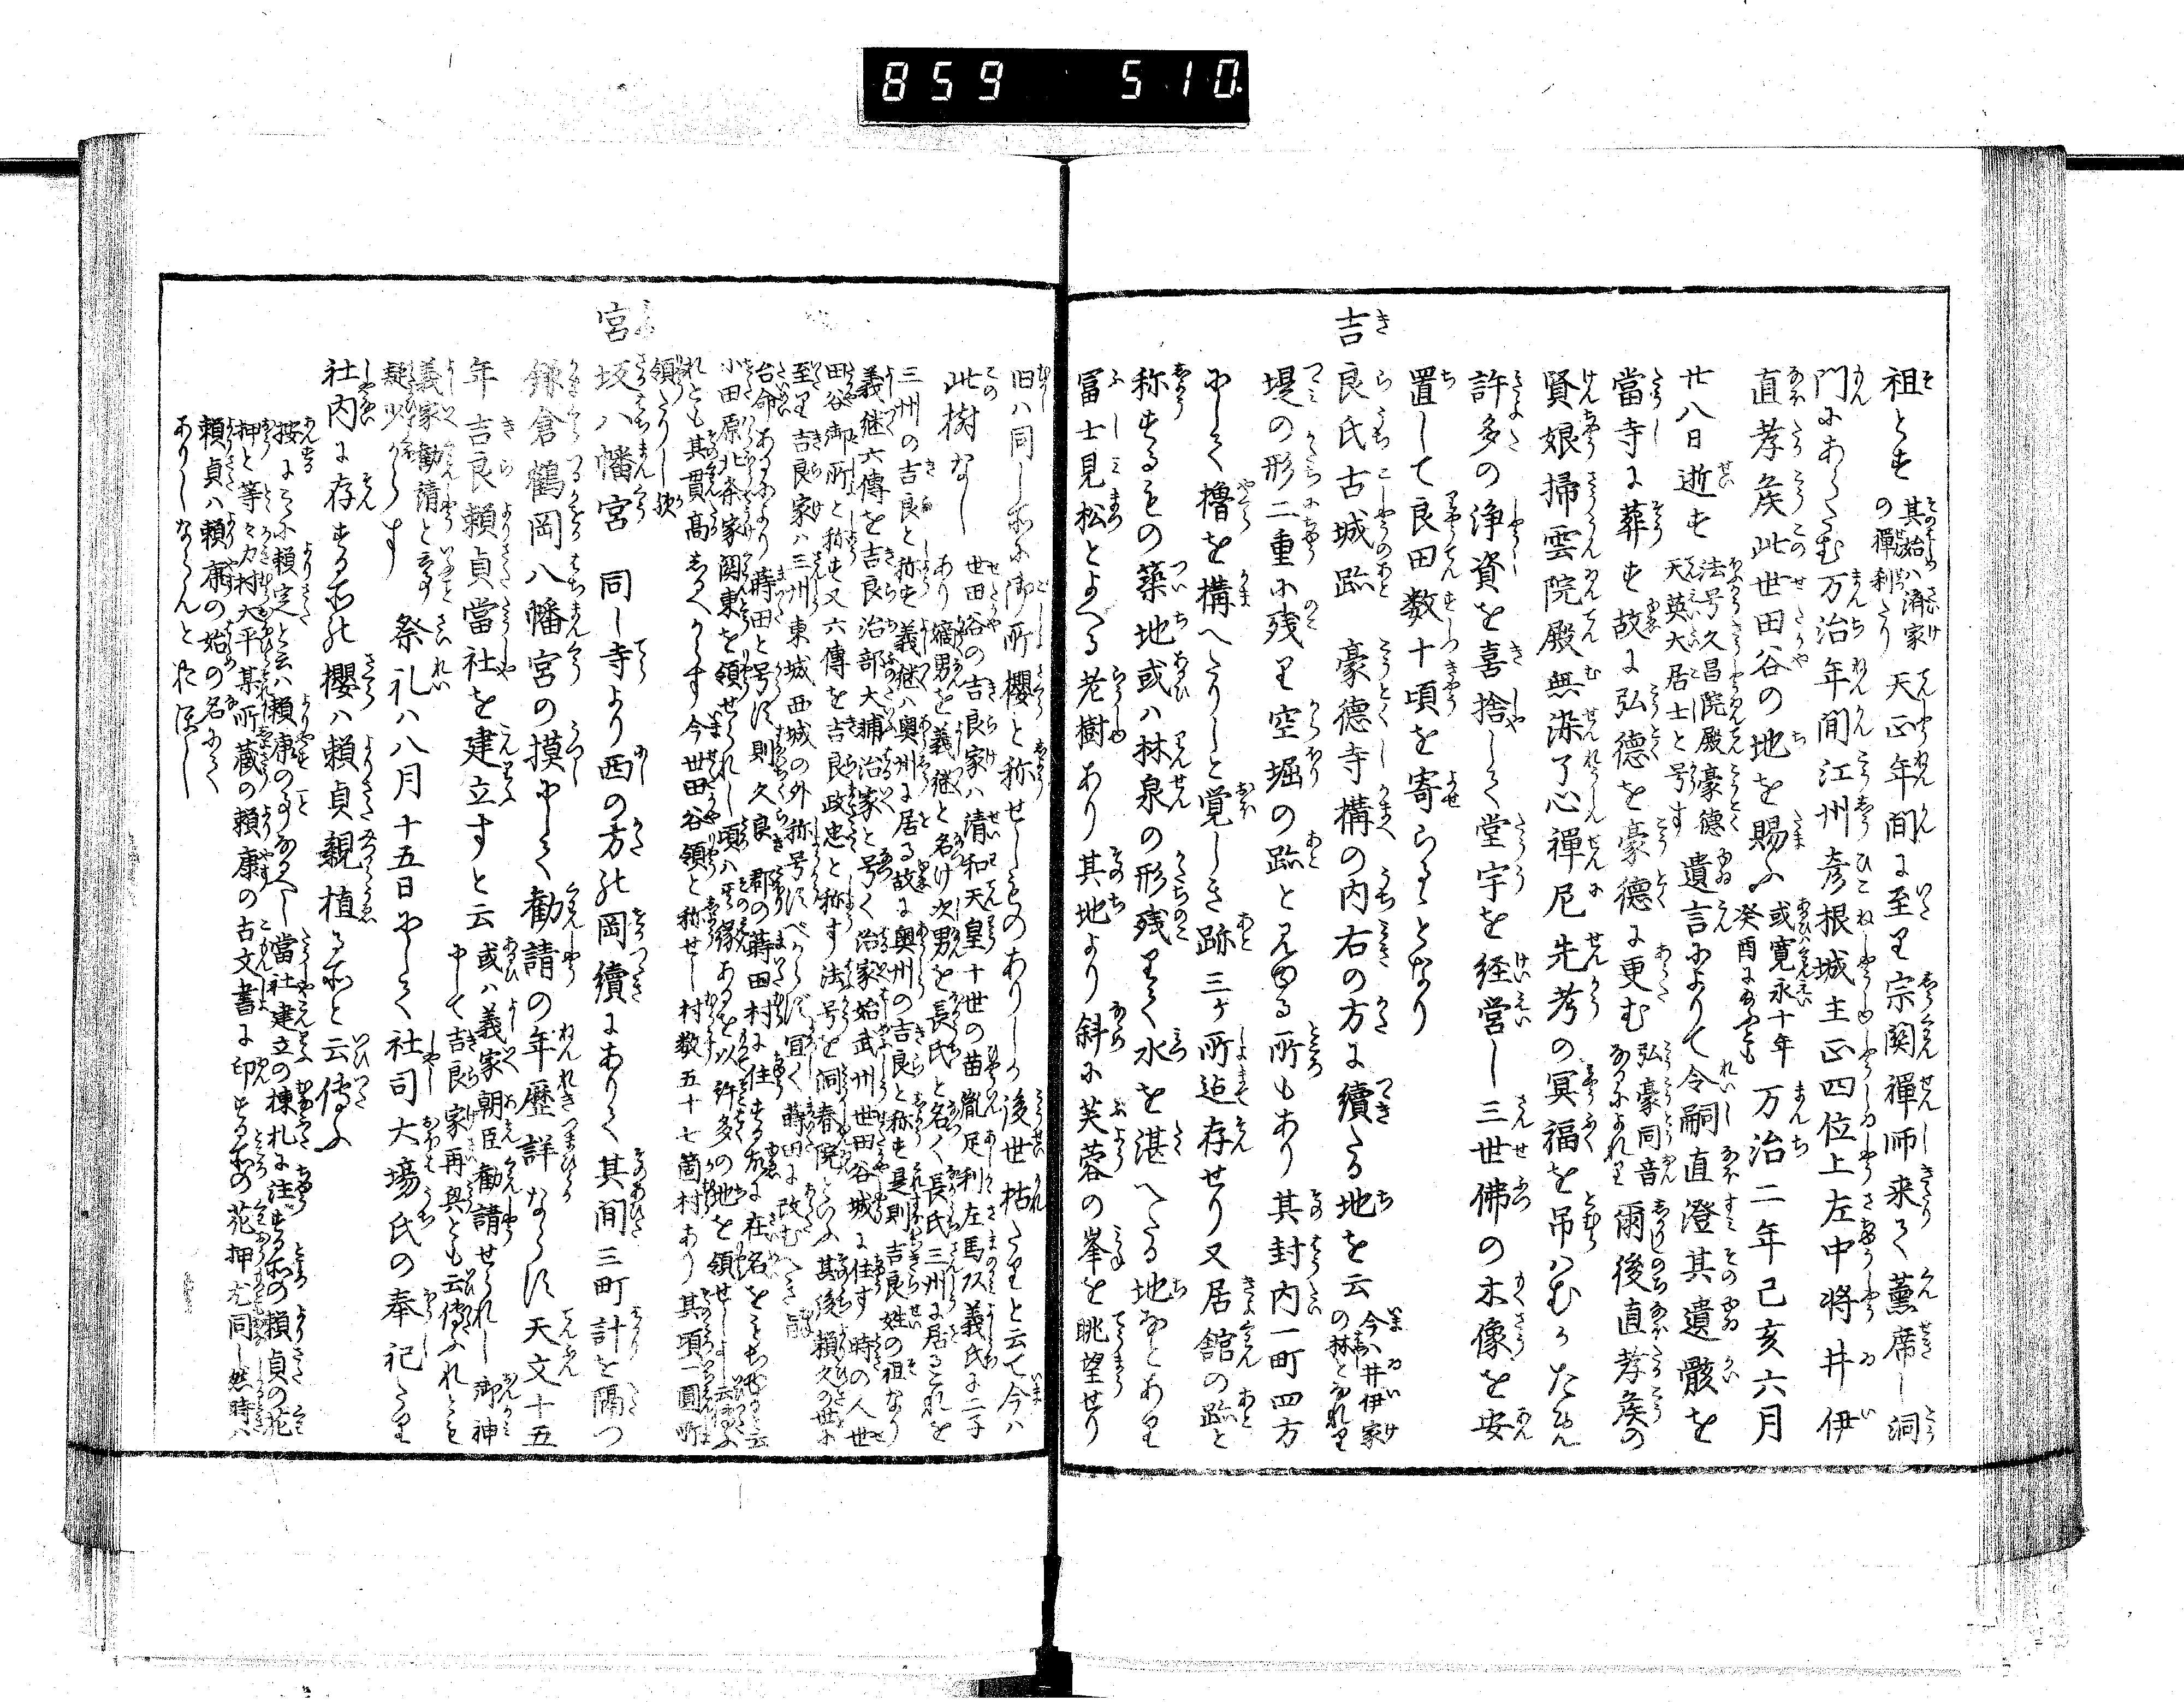 859 510
祖とす其始ハ済家の禅刹たり天正年間に至り宗関禅師来て薫席し洞
門にあらたむ万治年間江州彦根城主正四位上左中将井伊
直孝矦此世田谷の地を賜ふ或寛永十年癸酉にあやまる万治二年己亥六月
廿八日逝す法号久昌院殿豪徳天英大居士と号す遺言によりて令嗣直澄其遺骸を
當寺に葬す故に弘徳を豪徳に更む弘豪同音なるによれり爾後直孝矦の
賢娘掃雲院殿無染了心禅尼先考の冥福を吊ハむかため
許多の浄資を喜捨して堂宇を経営し三世佛の木像を安
置して良田数十頃を寄らるとなり
吉良氏古城趾 豪徳寺構の内右の方に續たる地を云今ハ井伊家の林となれり
堤の形二重に残り空堀の趾と見ゆる所もあり其封内一町四方
にして櫓を構へたりしと覚しき跡三ケ所迄存せり又居舘の趾と
称するもの築地或ハ林泉の形残りて水を湛へたる地なとあり
冨士見松とよへる老樹あり其地より斜に芙蓉の峯を眺望せり
旧ハ同し所に御所櫻と称せしものありしか後世枯たりと云て今ハ
此樹なし 世田谷の吉良家ハ清和天皇十世の苗胤足利左馬頭義氏に二子
あり嫡男を義継と名け次男を長氏と名く長氏三州に居るこれを
三州の吉良と称す義継ハ奥州に居る故に奥州の吉良と称す是則吉良姓の祖なり
義継六傳を吉良治部大輔治家と号く治家始武州世田谷城に住す時の人世
田谷御所と称す又六傳を吉良政忠と称す法号を洞春院といふ其後頼久の世に
至り吉良家ハ三州東城西城の外称号すへからす宜く蒔田に改むへき
台命あるにより蒔田と号す則久良郡の蒔田村に住する故に在名をとると云
小田原北条家関東を領せられし頃ハ其縁あるを以許多の地を領せしと云傳ふ
れとも其貫高しるへからす今世田谷領と称せし村数五十七箇村あり其頃一圓所
領たりし歟
宮坂八幡宮 同し寺より西の方の岡續にありて其間三町計を隔つ
鎌倉鶴岡八幡宮の摸にして勸請の年歴詳ならす天文十五
年吉良頼貞當社を建立すと云或ハ義家朝臣勸請せられし御神にして吉良家再興とも云傳ふれとも
義家勸請と云事疑少からす 祭礼ハ八月十五日にして社司大場氏の奉祀たり
社内に存する所の櫻ハ頼貞親植る所と云傳ふ
按するに頼定と云ハ頼康の事なるへし當社建立の棟札に注する所の頼貞の花
押と等々力村大平某所蔵の頼康の古文書に印する所の花押尤同し然時ハ
頼貞ハ頼康の始の名にて
ありしならんとおほし